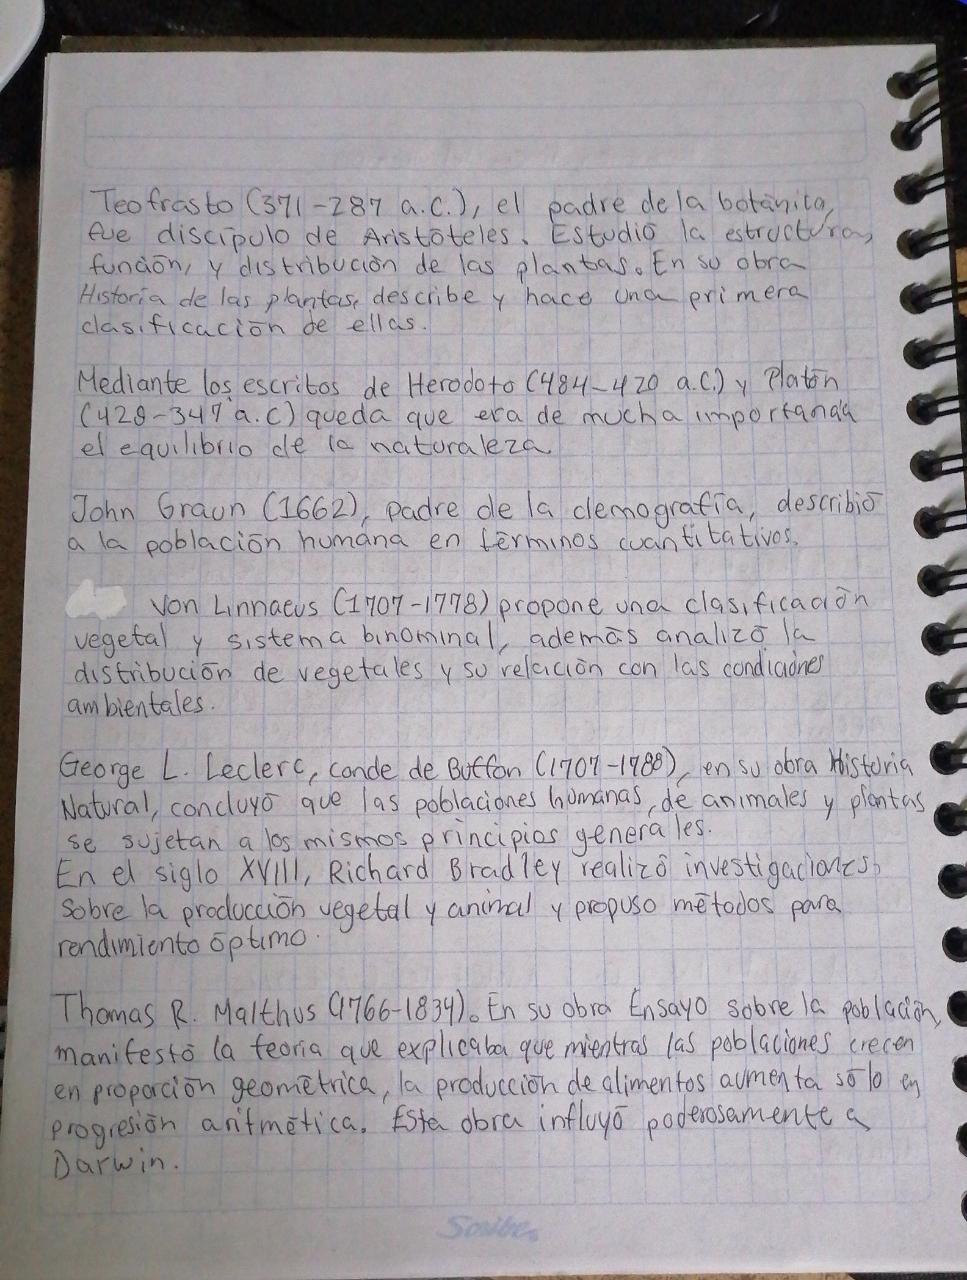 Teofrasto (371-287 a.c.), el padre de la botánica,
fue discípulo de Aristóteles. Estudió la estructura,
función, y distribución de las plantas. En su obra
Historia de las plantas, describe y hace una primera
clasificación de ellas.
Mediante los escritos de Herodoto (484-420 a.c.) y Platón
(428-347 a.c) queda que era de mucha importancia
el equilibrio de la naturaleza
John Graun (1662), padre de la demografía, describió
a la población humana en términos cuantitativos.
Von Linnaeus (1707-1778) propone una clasificación
vegetal y sistema binominal, además analizó la
distribución de vegetales y su relación con las condiciones
ambientales.
George L. Leclerc, conde de Buffon (1707-1788), en su obra Historia
Natural, concluyó que las poblaciones humanas, de animales y plantas
se sujetan a los mismos principios generales.
En el siglo XVIII, Richard Bradley realizó investigaciones
sobre la producción vegetal y animal y propuso métodos para
rendimiento óptimo.
Thomas R. Malthus (1766-1834). En su obra Ensayo sobre la población,
manifestó la teoría que explicaba que mientras las poblaciones crecen
en proporción geométrica, la producción de alimentos aumenta sólo en
progresión aritmética. Esta obra influyó poderosamente a
Darwin.
Scribe